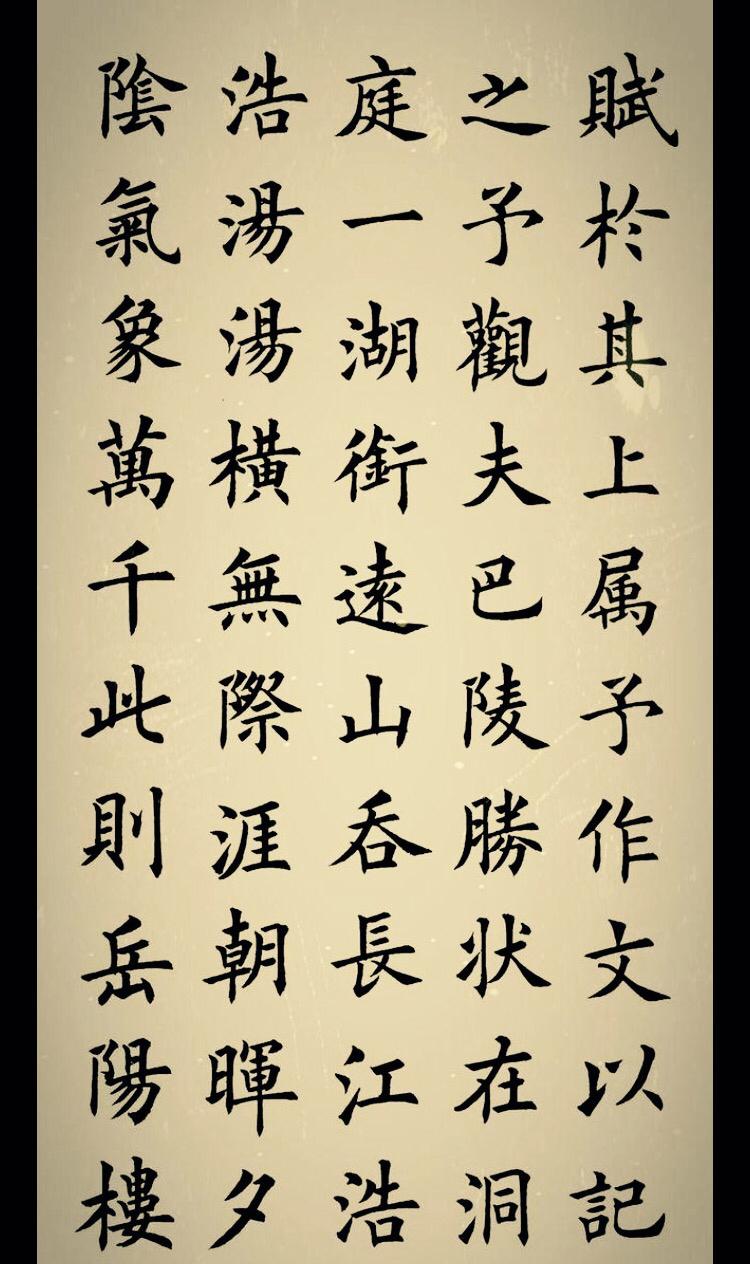 賦於其上属予作文以記
之予觀夫巴陵勝状在洞
庭一湖銜遠山吞長江浩
浩湯湯橫無際涯朝暉夕
陰氣象萬千此則岳陽樓